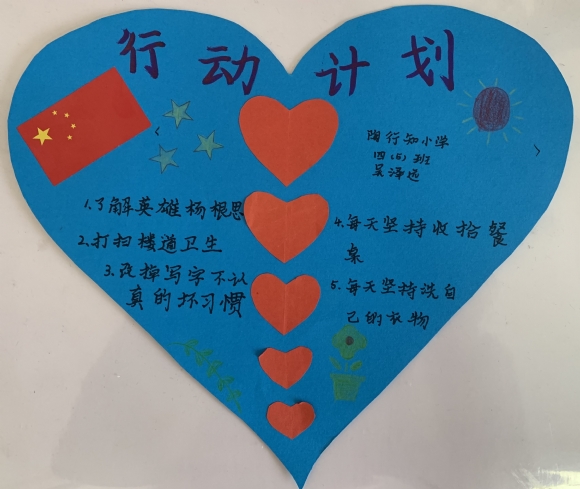 行动计划
陶行知小学
四(5)班
吴泽远
1.了解英雄杨根思
2.打扫楼道卫生
3.改掉写字不认
真的坏习惯
4.每天坚持收拾餐
桌
5.每天坚持洗自
己的衣物